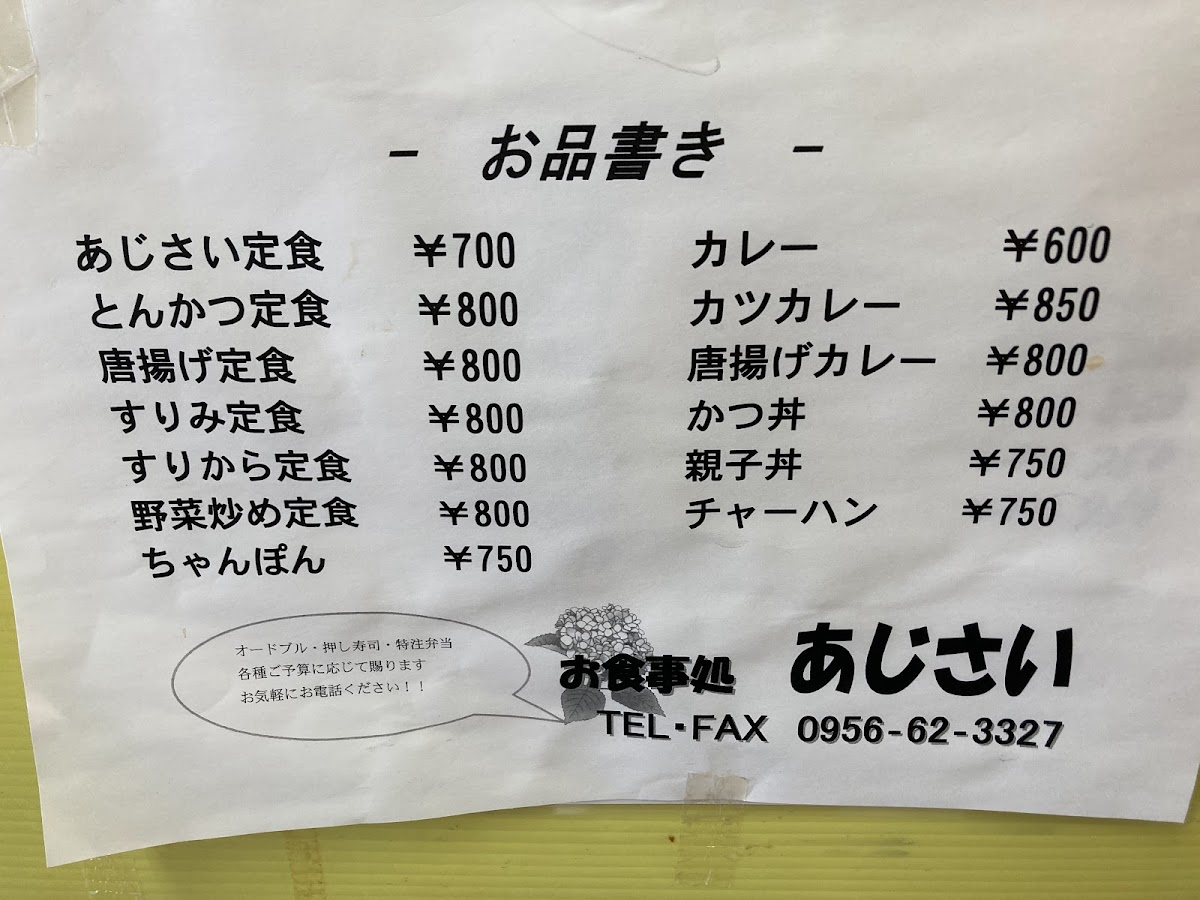 - お品書き -
あじさい定食 ¥700
とんかつ定食 ¥800
唐揚げ定食 ¥800
すりみ定食 ¥800
すりから定食 ¥800
野菜炒め定食 ¥800
ちゃんぽん ¥750
カレー ¥600
カツカレー ¥850
唐揚げカレー ¥800
かつ丼 ¥800
親子丼 ¥750
チャーハン ¥750
オードブル・押し寿司・特注弁当
各種ご予算に応じて賜ります
お気軽にお電話ください!!
お食事処 あじさい
TEL・FAX 0956-62-3327